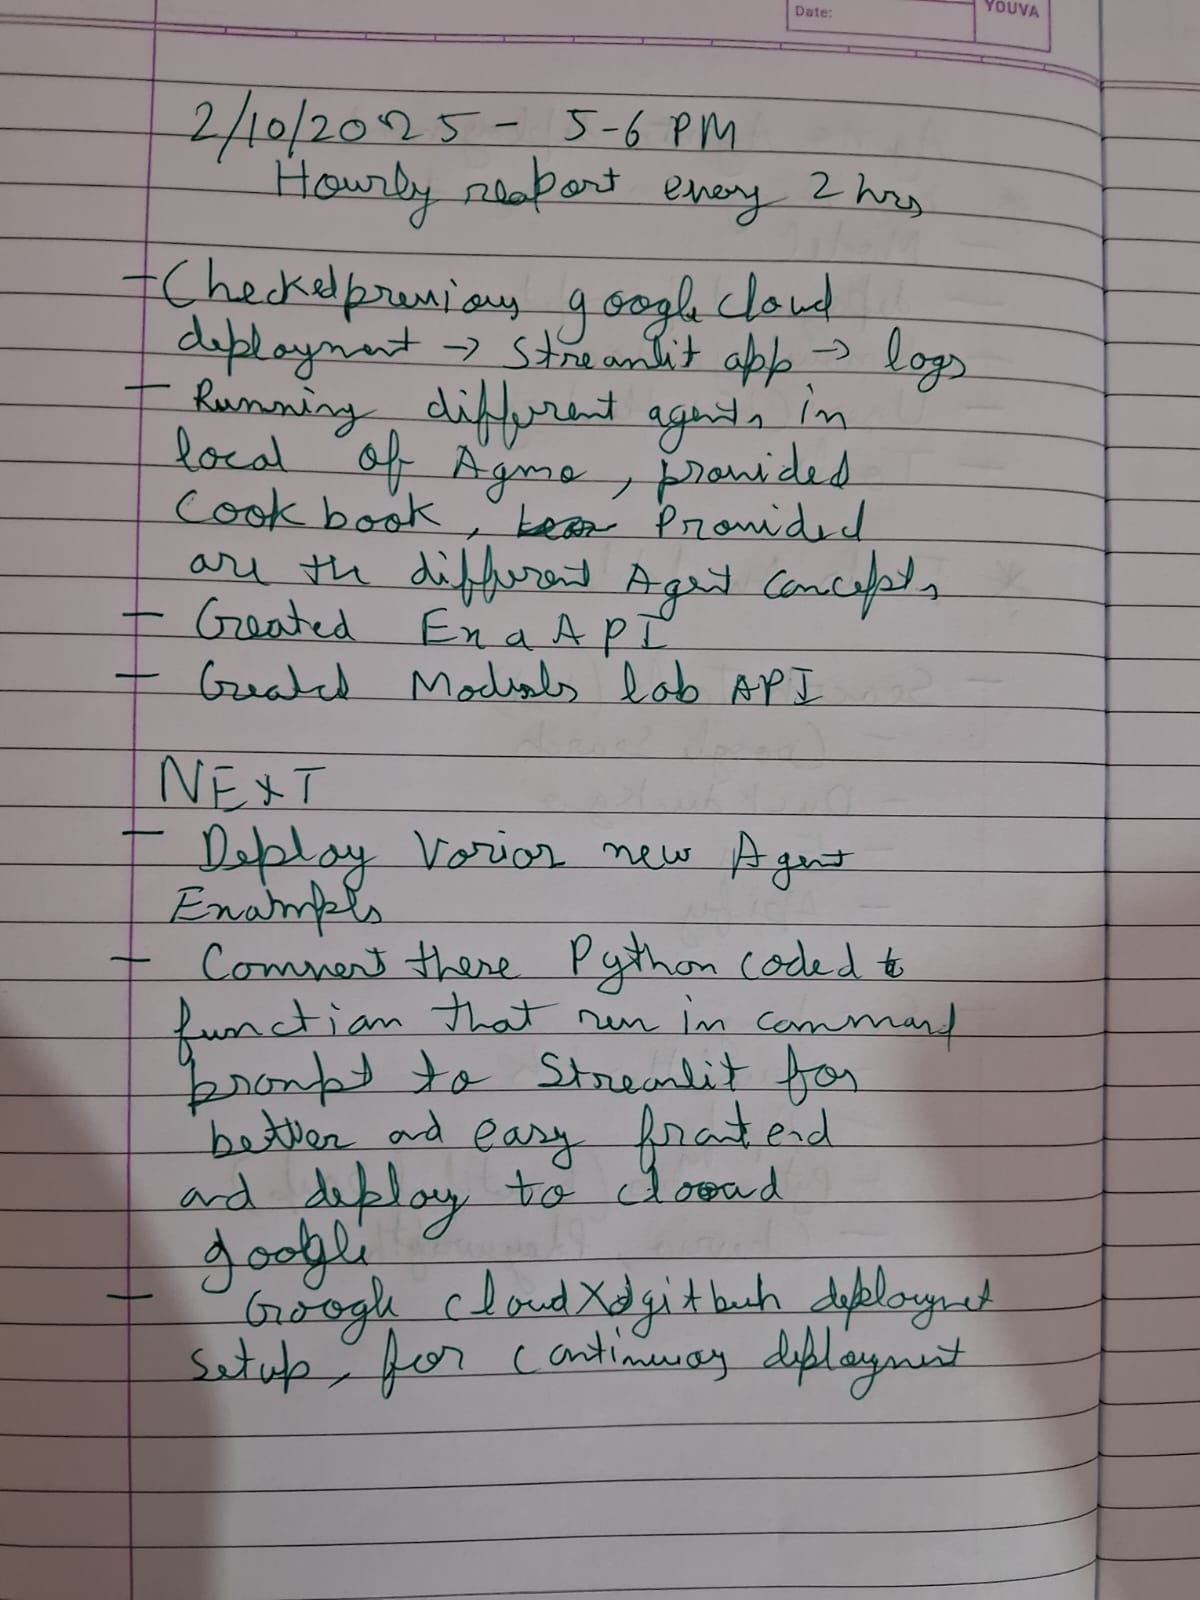 Date:
YOUVA
2/10/2025 - 5-6 PM
Hourly report every 2 hrs
- Checked previous google cloud
deployment → Streamlit app → logs
- Running different agents in
local of Agmo, provided
Cookbook, Provided
are the different Agent Concepts
- Created Exa API
- Created Models lab API
NEXT
- Deploy Varior new Agent
Exampls
- Convert these Python coded to
function that run in command
prompt to Streamlit for
better and easy frontend
and deploy to cloud
google
- Google cloud X github deployment
setup, for continuous deployment